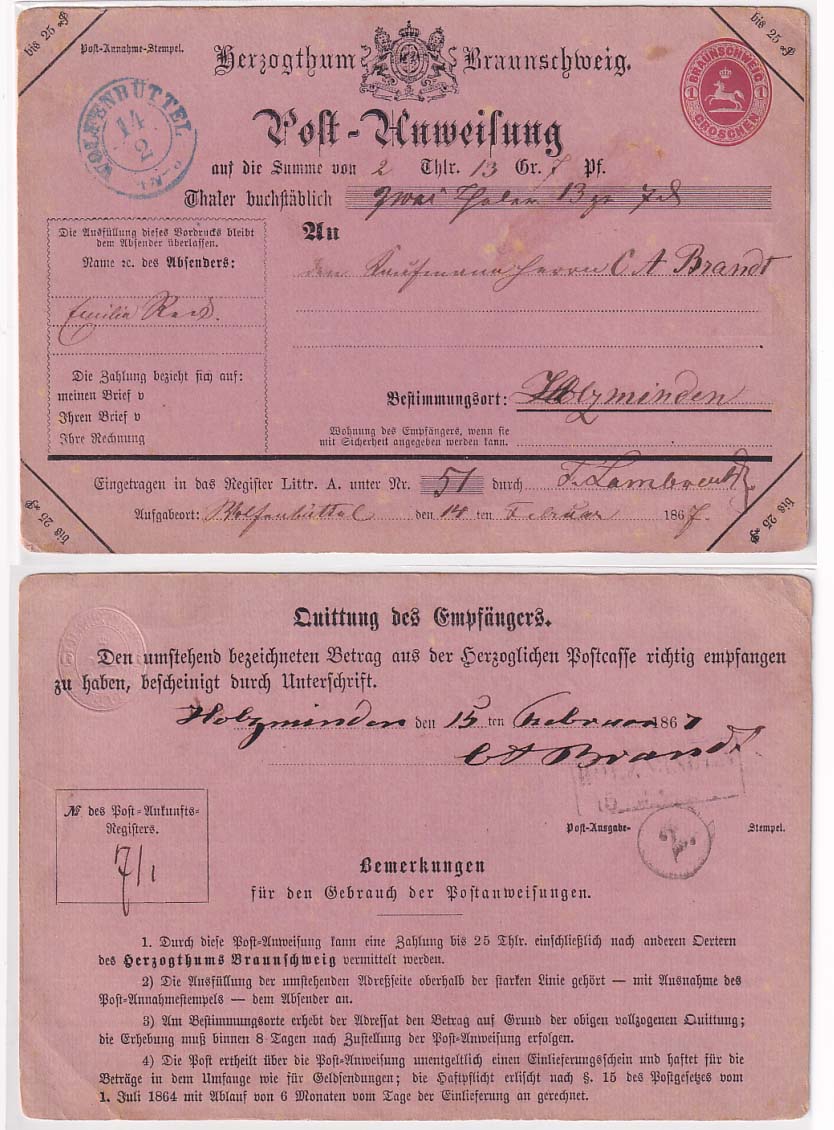 bis 25 ₰
Post-Annahme-Stempel.
Herzogthum Braunschweig.
bis 25 ₰
BRAUNSCHWEIG
1 1
GROSCHEN
WOLFENBÜTTEL
14
2
Post-Anweisung
auf die Summe von 2 Thlr. 13 Gr. 7 Pf.
Thaler buchstäblich zwei Thaler 13 gr 7 d
Die Ausfüllung dieses Vordrucks bleibt
dem Absender überlassen.
Name ꝛc. des Absenders:
Emilie
An
den Kaufmann Herrn C A Brandt
Die Zahlung bezieht sich auf:
meinen Brief v
Ihren Brief v
Ihre Rechnung
Bestimmungsort: Holzminden
Wohnung des Empfängers, wenn sie
mit Sicherheit angegeben werden kann.
Eingetragen in das Register Littr. A. unter Nr. 51 durch F. Lambrecht
Aufgabeort: Wolfenbüttel den 14 ten Februar 1867.
bis 25 ₰
bis 25 ₰
Quittung des Empfängers.
Den umstehend bezeichneten Betrag aus der Herzoglichen Postcasse richtig empfangen
zu haben, bescheinigt durch Unterschrift.
Holzminden den 15 ten Februar 1867
CA Brandt
№ des Post-Ankunfts-
Registers.
7/1
Post-Ausgabe- Stempel.
Bemerkungen
für den Gebrauch der Postanweisungen.
1. Durch diese Post-Anweisung kann eine Zahlung bis 25 Thlr. einschließlich nach anderen Oertern
des Herzogthums Braunschweig vermittelt werden.
2) Die Ausfüllung der umstehenden Adreßseite oberhalb der starken Linie gehört — mit Ausnahme des
Post-Annahmestempels — dem Absender an.
3) Am Bestimmungsorte erhebt der Adressat den Betrag auf Grund der obigen vollzogenen Quittung;
die Erhebung muß binnen 8 Tagen nach Zustellung der Post-Anweisung erfolgen.
4) Die Post ertheilt über die Post-Anweisung unentgeltlich einen Einlieferungsschein und haftet für die
Beträge in dem Umfange wie für Geldsendungen; die Haftpflicht erlischt nach §. 15 des Postgesetzes vom
1. Juli 1864 mit Ablauf von 6 Monaten vom Tage der Einlieferung an gerechnet.